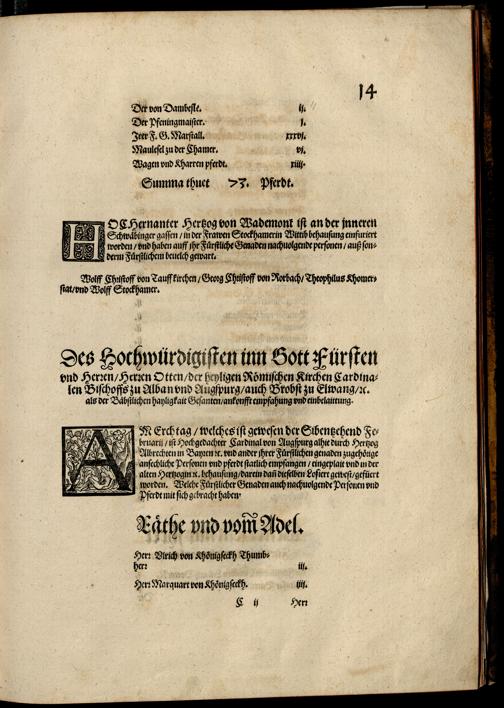 14
Der von Dambesle. ij.
Der Pfeningmaister. j.
Jrer F. G. Marstall. xxxvj.
Maulesel zu der Chamer. vj.
Wagen vnd Kharren pferdt. xiiij.
Summa thuet 73. Pferdt.
HOCHernanter Hertzog von Wademont ist an der jnneren
Schwäbinger gassen / in der Frawen Stockhamerin Wittib behausung einfuriert
worden / vnd haben auff jhr Fürstliche Genaden nachuolgende personen / auß son-
derm Fürstlichem beuelch gewart.
Wolff Christoff von Tauffkirchen / Georg Christoff von Rorbach / Theophilus Khomer-
stat / vnd Wolff Stockhamer.
Des Hochwürdigisten inn Gott Fürsten
vnd Herren / Herren Otten / der heyligen Römischen Kirchen Cardina-
len Bischoffs zu Alban vnd Augspurg / auch Brobst zu Elwang / ꝛc.
als der Bäbstlichen hayligkait Gesanten / ankonfft empfahung vnd einbelaittung.
AM Erchtag / welches ist gewesen der Sibentzehend Fe-
bruarij / ist Hochgedachter Cardinal von Augspurg alhie durch Hertzog
Albrechten in Bayren ꝛc. vnd ander jhrer Fürstlichen genaden zugehörige
ansechliche Personen vnd pferd statlich empfangen / eingeplait vnd in der
alten Hertzogin ꝛc. behausung / darein dañ dieselben Losiert gewest / gefüert
worden. Welche Fürstlicher Genaden auch nachuolgende Personen vnd
Pferdt mit sich gebracht haben.
Räthe vnd vom̃ Adel.
Herr Vlrich von Khönigseckh Thumb-
herr iij.
Herr Marquart von Khönigseckh. iiij.
C ij Herr